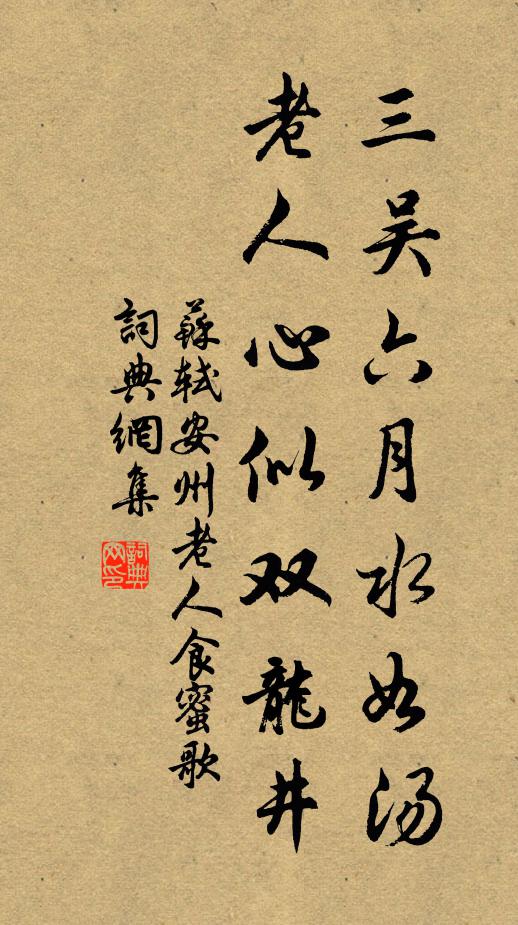 三吴六月水如汤
老人心似双龍井
蘇軾安州老人食蜜歌
詞典網集
詞典网印